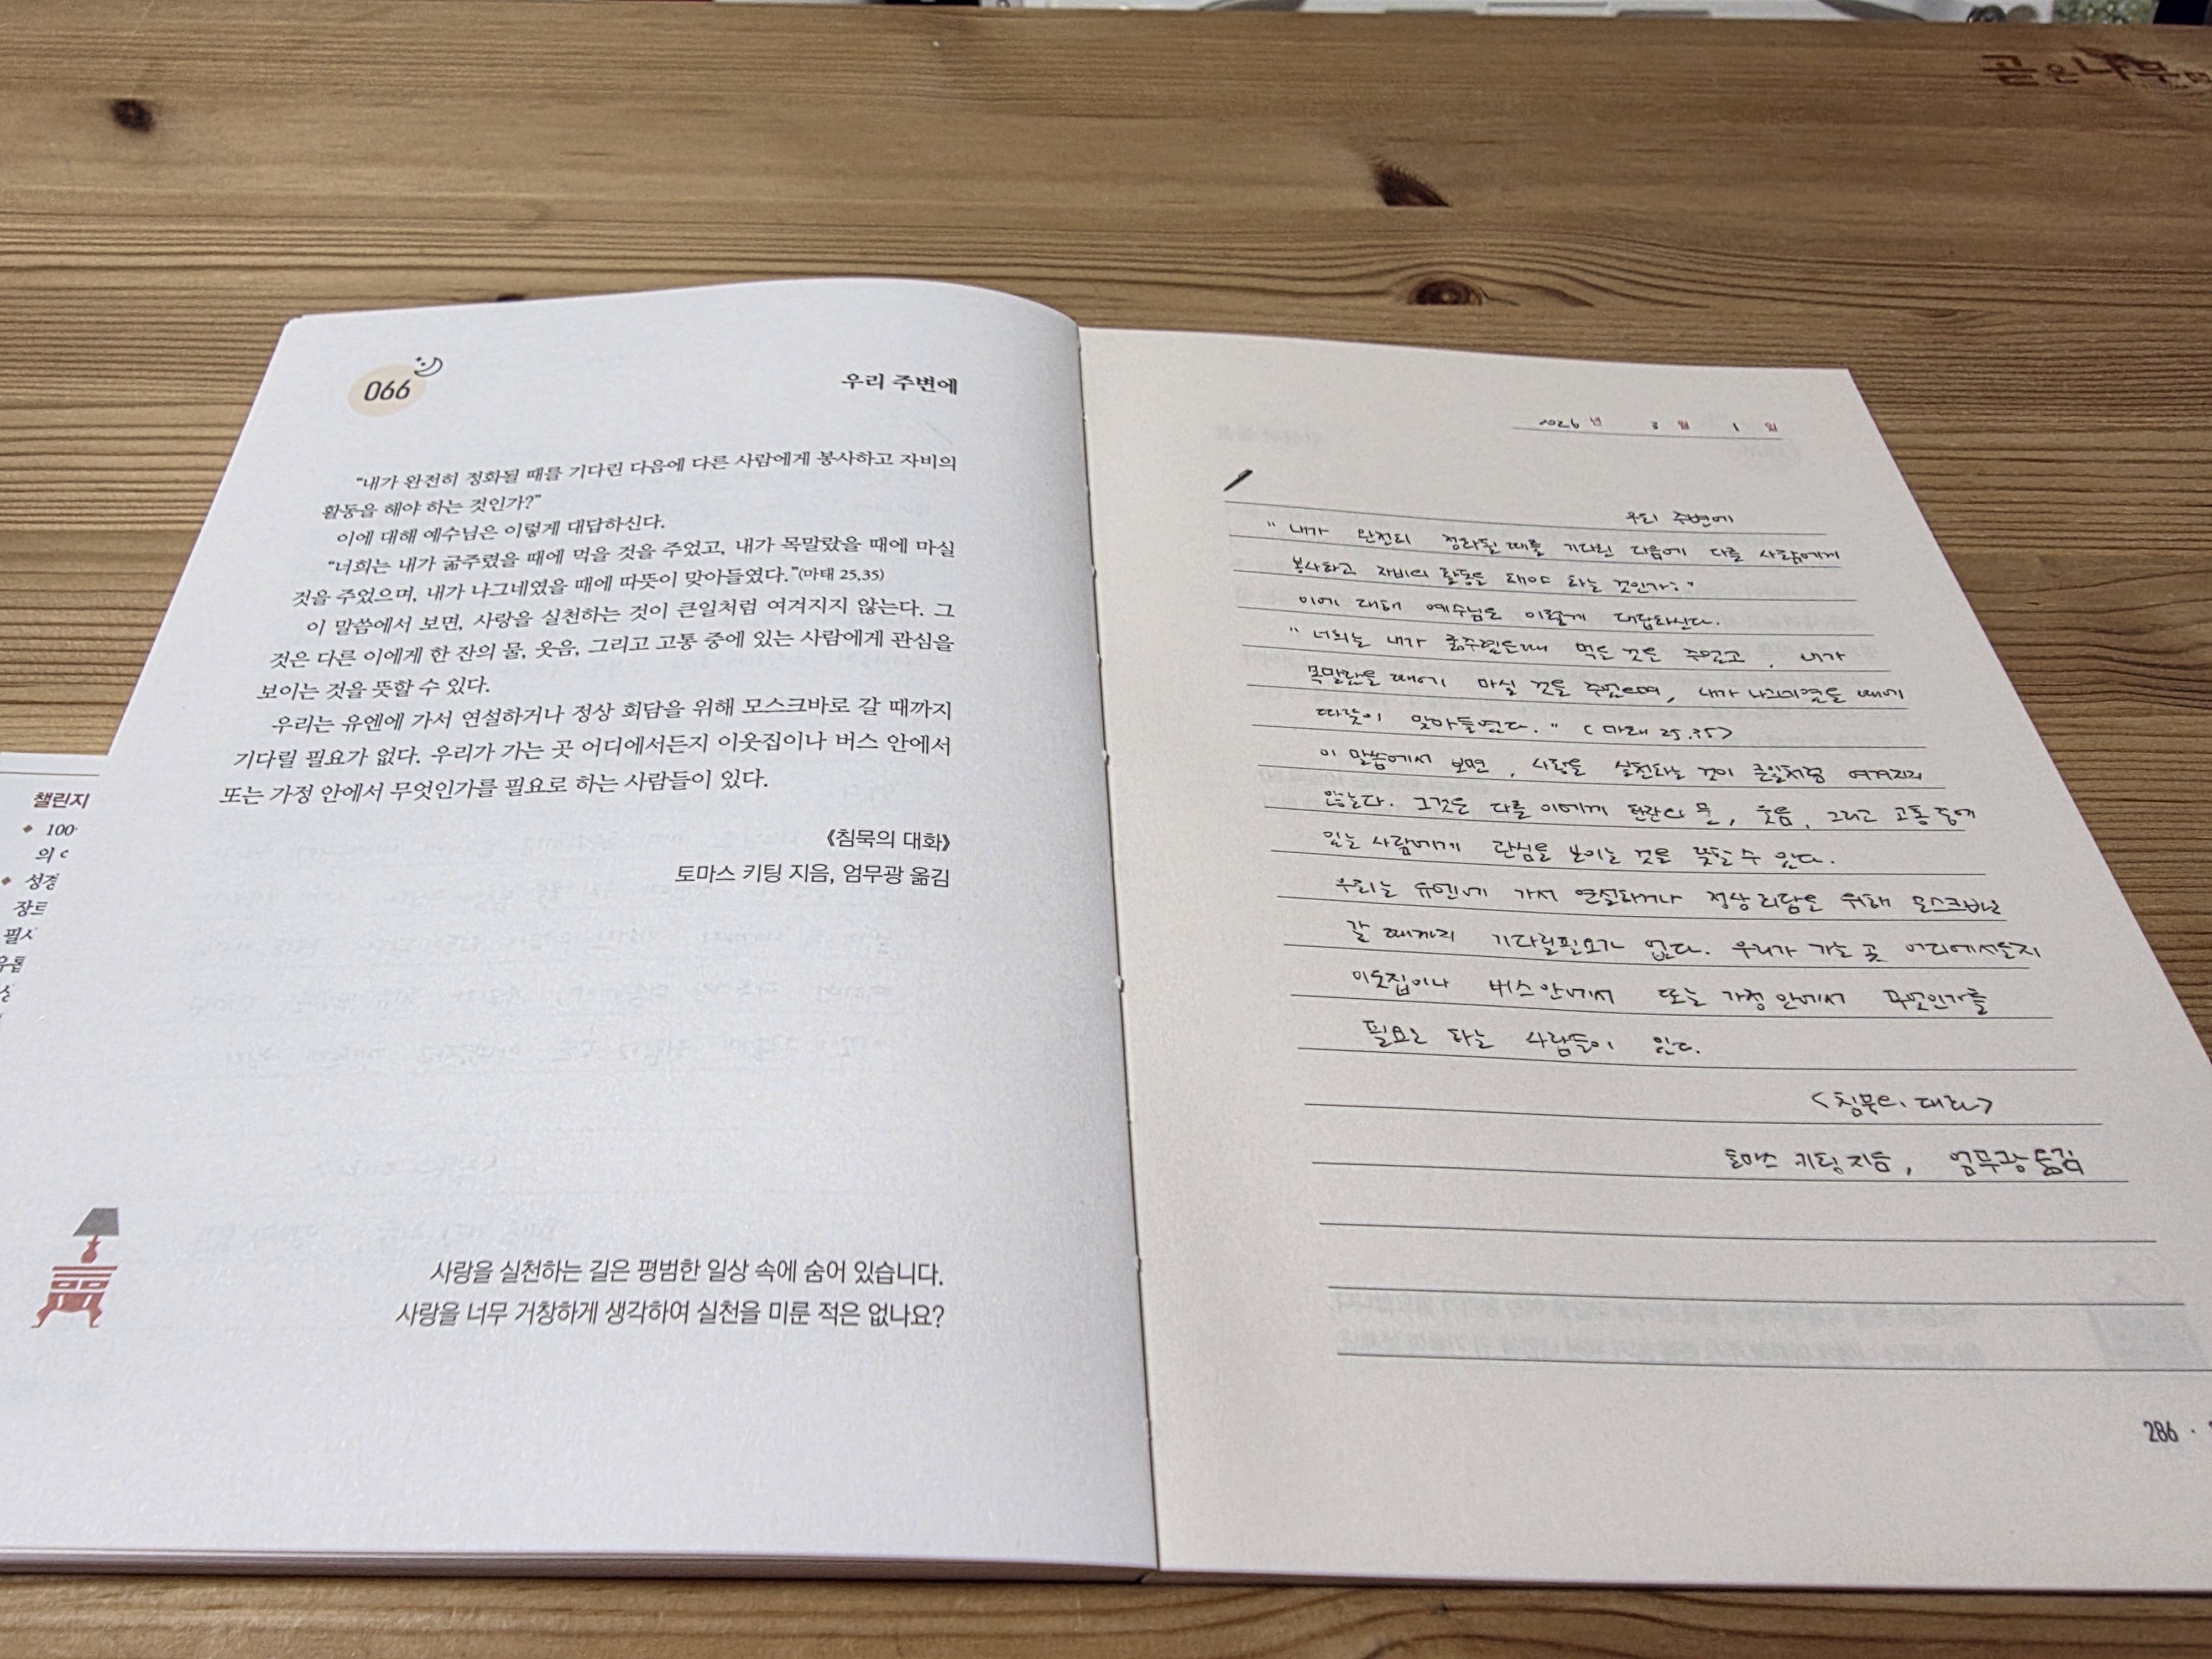 066
우리 주변에
“내가 완전히 정화될 때를 기다린 다음에 다른 사람에게 봉사하고 자비의
활동을 해야 하는 것인가?”
이에 대해 예수님은 이렇게 대답하신다.
“너희는 내가 굶주렸을 때에 먹을 것을 주었고, 내가 목말랐을 때에 마실
것을 주었으며, 내가 나그네였을 때에 따뜻이 맞아들였다.”(마태 25,35)
이 말씀에서 보면, 사랑을 실천하는 것이 큰일처럼 여겨지지 않는다. 그
것은 다른 이에게 한 잔의 물, 웃음, 그리고 고통 중에 있는 사람에게 관심을
보이는 것을 뜻할 수 있다.
우리는 유엔에 가서 연설하거나 정상 회담을 위해 모스크바로 갈 때까지
기다릴 필요가 없다. 우리가 가는 곳 어디에서든지 이웃집이나 버스 안에서
또는 가정 안에서 무엇인가를 필요로 하는 사람들이 있다.
《침묵의 대화》
토마스 키팅 지음, 엄무광 옮김
사랑을 실천하는 길은 평범한 일상 속에 숨어 있습니다.
사랑을 너무 거창하게 생각하여 실천을 미룬 적은 없나요?
챌린지
100
의
성경
2026 년 3 월 1 일
우리 주변에
" 내가 완전히 정화될 때를 기다린 다음에 다른 사람에게
봉사하고 자비의 활동을 해야 하는 것인가?"
이에 대해 예수님은 이렇게 대답하신다.
" 너희는 내가 굶주렸을때 먹을 것을 주었고, 내가
목말랐을 때에 마실 것을 주었으며, 내가 나그네였을 때에
따뜻이 맞아들였다. " <마태 25.35>
이 말씀에서 보면, 사랑을 실천하는 것이 큰일처럼 여겨지지
않는다. 그것은 다른 이에게 한잔의 물, 웃음, 그리고 고통 중에
있는 사람에게 관심을 보이는 것을 뜻할 수 있다.
우리는 유엔에 가서 연설하거나 정상회담을 위해 모스크바로
갈 때까지 기다릴필요가 없다. 우리가 가는 곳 어디에서든지
이웃집이나 버스안에서 또는 가정 안에서 무엇인가를
필요로 하는 사람들이 있다.
<침묵의 대화>
토마스 키팅 지음, 엄무광 옮김
286